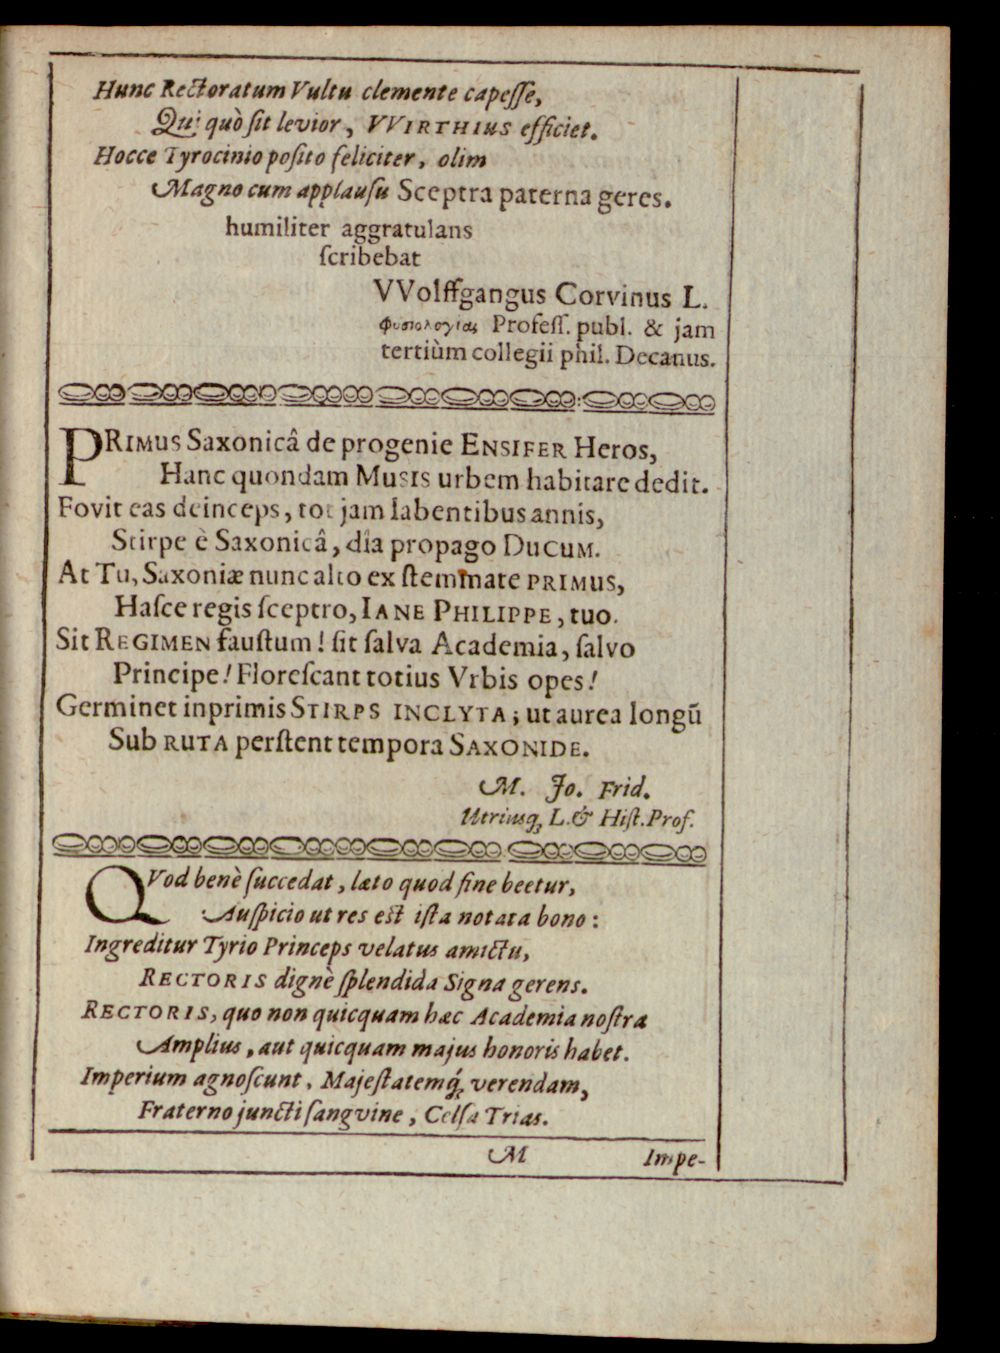 Hunc Rectoratum Vultu clemente capeſſe,
Qui quò ſit levior, VVIRTHIUS efficiet.
Hocce Tyrocinio poſito feliciter, olim
Magno cum applauſu Sceptra paterna geres.
humiliter aggratulans
ſcribebat
VVolffgangus Corvinus L.
φυσιολογίας Profeſſ. publ. & jam
tertiùm collegii phil. Decanus.
PRIMUS Saxonicâ de progenie ENSIFER Heros,
Hanc quondam MUSIS urbem habitare dedit.
Fovit eas deinceps, tot jam labentibus annis,
Stirpe è Saxonicâ, dîa propago DUCUM.
At Tu, Saxoniæ nunc alto ex ſtemmate PRIMUS,
Haſce regis ſceptro, IANE PHILIPPE, tuo.
Sit REGIMEN fauſtum! ſit ſalva Academia, ſalvo
Principe! Floreſcant totius Vrbis opes!
Germinet inprimis STIRPS INCLYTA; ut aurea longũ
Sub RUTA perſtent tempora SAXONIDE.
M. Jo. Frid.
Utriusq; L. & Hiſt. Prof.
QVod benè ſuccedat, læto quod fine beetur,
Auſpicio ut res eſt iſta notata bono:
Ingreditur Tyrio Princeps velatus amictu,
RECTORIS dignè ſplendida Signa gerens.
RECTORIS, quo non quicquam hæc Academia noſtra
Amplius, aut quicquam majus honoris habet.
Imperium agnoſcunt, Majeſtatemq́; verendam,
Fraterno juncti ſangvine, Celſa Trias.
M
Impe-